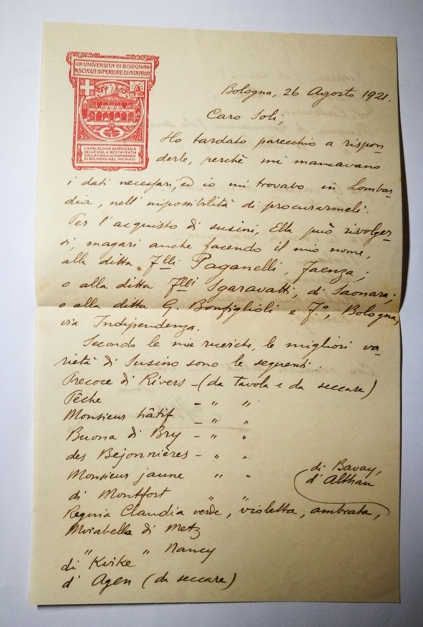 R. UNIVERSITÀ DI BOLOGNA
R. SCUOLA SUPERIORE DI AGRARIA
Bologna, 26 Agosto 1921.
Caro Soli,
Ho tardato parecchio a rispon
derle, perchè mi mancavano
i dati necessari, ed io mi trovavo in Lombar-
dia, nell'impossibilità di procurarmeli.
Per l'acquisto di susini, Ella può rivolger
si, magari anche facendo il mio nome,
alla ditta F.lli Paganelli, Faenza;
o alla ditta F.lli Sgaravatti, di Saonara;
o alla ditta G. Bonfiglioli e F.°, Bologna,
via Indipendenza.
Secondo le mie ricerche, le migliori va
rietà di Susino sono le seguenti:
Precoce di Rivers - (da tavola e da seccare)
Pêche - " "
Monsieur hâtif - " "
Buona di Bry - " "
des Béjonnières - " "
Monsieur jaune " "
di Bavay,
d'Althan
di Montfort " "
Regina Claudia verde, violetta, ambrata,
Mirabella di Metz
" " Nancy
di Kirke
d'Agen (da seccare)